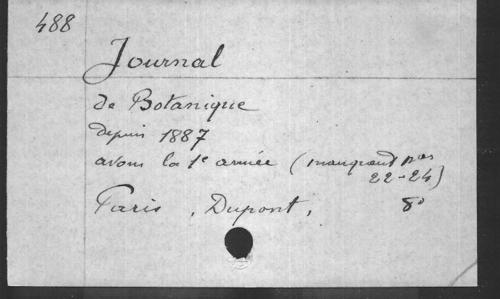 488
Journal
de Botanique
depuis 1887
avons la 1e année (manquent nos
22-24)
Paris, Dupont, 8°